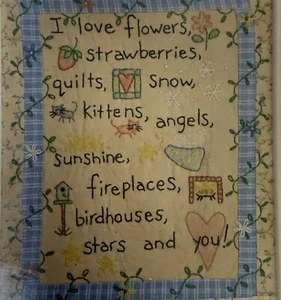 I love flowers,
strawberries,
quilts, snow,
kittens, angels,
sunshine,
fireplaces,
birdhouses,
stars and you!